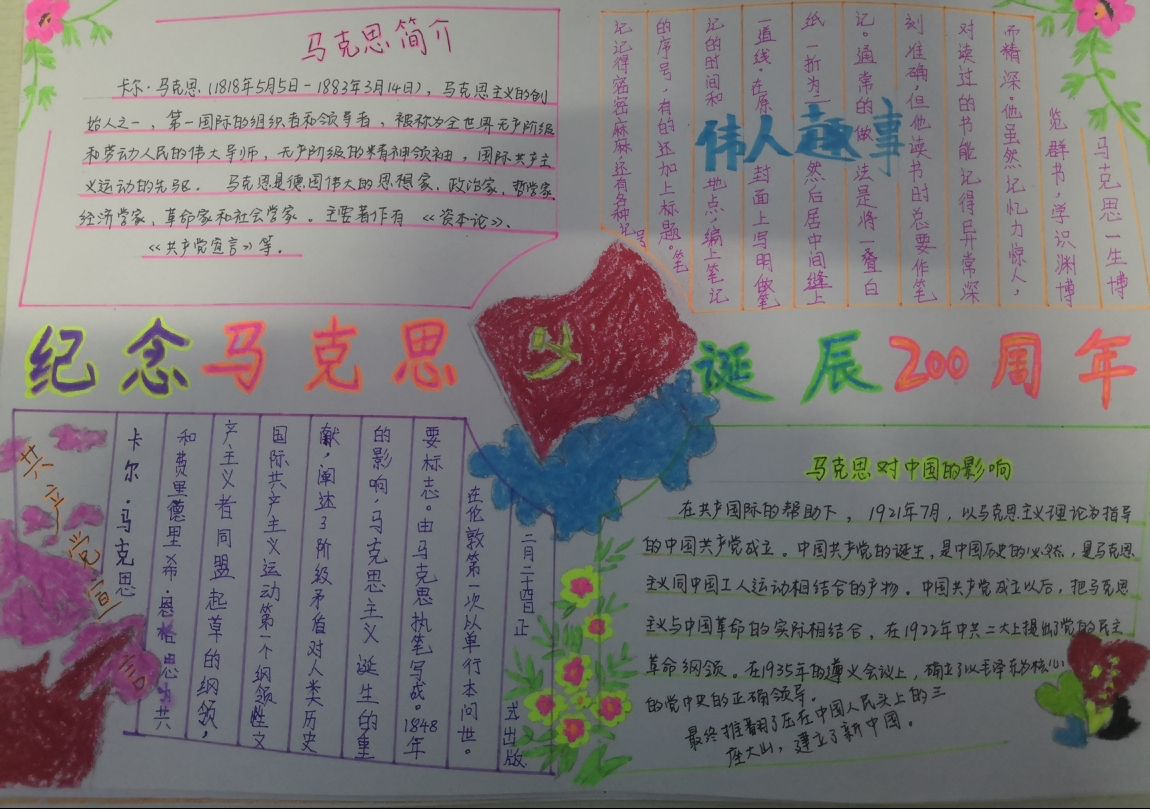 马克思简介
卡尔·马克思(1818年5月5日-1883年3月14日),马克思主义的创
始人之一,第一国际的组织者和领导者,被称为全世界无产阶级
和劳动人民的伟大导师,无产阶级的精神领袖,国际共产主
义运动的先驱。马克思是德国伟大的思想家、政治家、哲学家、
经济学家、革命家和社会学家。主要著作有《资本论》、
《共产党宣言》等.
伟人趣事
马克思一生博
览群书,学识渊博
而精深。他虽然记忆力惊人,
对读过的书能记得异常深
刻准确,但他读书时总要作笔
记。通常的做法是将一叠白
纸一折为二,然后居中间缝上
一道线,在原封面上写明做笔
记的时间和地点,编上笔记
的序号,有的还加上标题。笔
记记得密密麻麻,还有各种记号
纪念马克思诞辰200周年
共产党宣言
卡尔·马克思
和费里德里希·恩格思为共
产主义者同盟起草的纲领,
国际共产主义运动第一个纲领性文
献,阐达了阶级矛盾对人类历史
的影响,马克思主义诞生的重
要标志。由马克思执笔写成。1848年
在伦敦第一次以单行本问世。
二月二十四日正式出版
马克思对中国的影响
在共产国际的帮助下,1921年7月,以马克思主义理论为指导
的中国共产党成立。中国共产党的诞生,是中国历史的必然,是马克思
主义同中国工人运动相结合的产物。中国共产党成立以后,把马克思
主义与中国革命的实际相结合,在1922年中共二大上提出了党的民主
革命纲领。在1935年的遵义会议上,确立了以毛泽东为核心
的党中央的正确领导.
最终推翻了压在中国人民头上的三
座大山,建立了新中国。